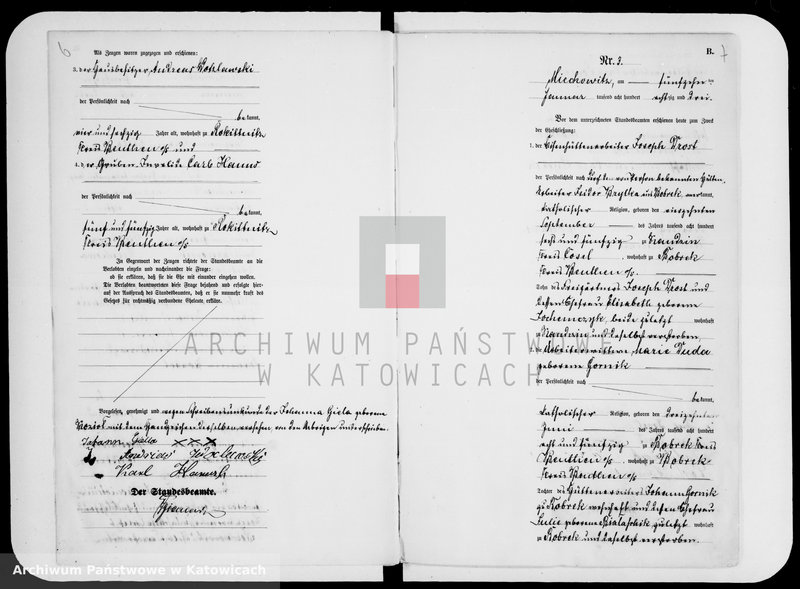 6
Als Zeugen waren zugezogen und erschienen:
3. der Hausbesitzer Andreas Kozlawski
der Persönlichkeit nach
be kannt,
vier und sechzig Jahre alt, wohnhaft zu Rokittnitz
Kreis Beuthen o/s und
4. der Gruben-Invalide Carl Hanus
der Persönlichkeit nach
be kannt,
fünf und fünfzig Jahre alt, wohnhaft zu Rokittnitz
Kreis Beuthen o/s
In Gegenwart der Zeugen richtete der Standesbeamte an die
Verlobten einzeln und nacheinander die Frage:
ob sie erklären, daß sie die Ehe mit einander eingehen wollen.
Die Verlobten beantworteten diese Frage bejahend und erfolgte hier-
auf der Ausspruch des Standesbeamten, daß er sie nunmehr kraft des
Gesetzes für rechtmäßig verbundene Eheleute erkläre.
Vorgelesen, genehmigt und wegen Schreibensunkunde der Johanna Giela geborene
mit dem Handzeichen derselben versehen, von den Uebrigen unterschrieben.
Johann Giella xxx
Andreas
Karl
Der Standesbeamte.
B.
7
Nr. 3.
Miechowitz, am fünfzehnten
Januar tausend acht hundert achtzig und drei.
Vor dem unterzeichneten Standesbeamten erschienen heute zum Zweck
der Eheschließung:
1. der Eisenhüttenarbeiter Joseph Drost
der Persönlichkeit nach durch den von Person bekannten Hütten
arbeiter Isidor Brzytka aus Bobrek anerkannt,
katholischer Religion, geboren den vierzehnten
September des Jahres tausend acht hundert
sechs und fünfzig zu Kandrzin
Kreis Cosel, wohnhaft zu Bobrek
Kreis Beuthen o/s.
Sohn des Freigärtners Joseph Drost und
dessen Ehefrau Elisabeth geborene
beide zuletzt wohnhaft
zu Kandrzin und daselbst verstorben.
2. die Arbeiterwittwe Marie Duda
geborene Gornik
der Persönlichkeit nach
be kannt,
katholischer Religion, geboren den dreizehnten
Juni des Jahres tausend acht hundert
acht und fünfzig zu Bobrek Kreis
Beuthen o/s, wohnhaft zu Bobrek
Kreis Beuthen o/s
Tochter des Johann Gornik
zu Bobrek wohnhaft und dessen Ehefrau
Julie geborene zuletzt wohnhaft
zu Bobrek und daselbst verstorben.
ARCHIWUM PAŃSTWOWE
W KATOWICACH
Archiwum Państwowe w Katowicach